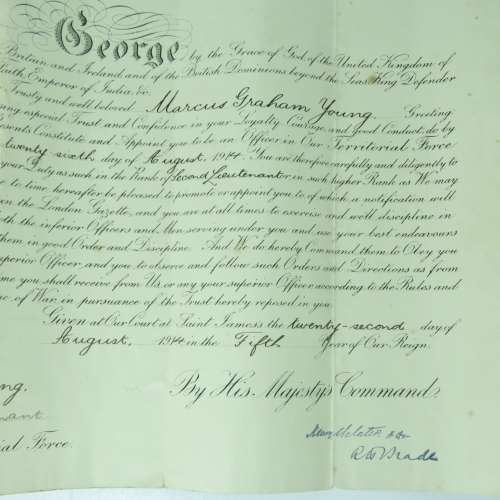 George by the Grace of God, of the United Kingdom of
Britain and Ireland and of the British Dominions beyond the Seas King Defender
Faith, Emperor of India, &c.
Trusty and well beloved Marcus Graham Young Greeting
ing especial Trust and Confidence in your Loyalty Courage and good Conduct, do by
esents Constitute and Appoint you to be an Officer in Our Territorial Force
twenty-sixth day of August 1914. You are therefore carefully and diligently to
your Duty as such in the Rank of Second Lieutenant or in such higher Rank as We may
e to time hereafter be pleased to promote or appoint you to, of which a notification will
in the London Gazette, and you are at all times to exercise and well discipline in
th the inferior Officers and Men serving under you and use your best endeavours
them in good Order and Discipline. And We do hereby Command them to Obey you
uperior Officer, and you to observe and follow such Orders and Directions as from
me you shall receive from Us, or any your superior Officer according to the Rules and
ne of War, in pursuance of the Trust hereby reposed in you.
Given at Our Court at Saint James's the twenty-second day of
August, 1914 in the Fifth Year of Our Reign.
By His Majesty's Command.
ng.
nant
ial Force.